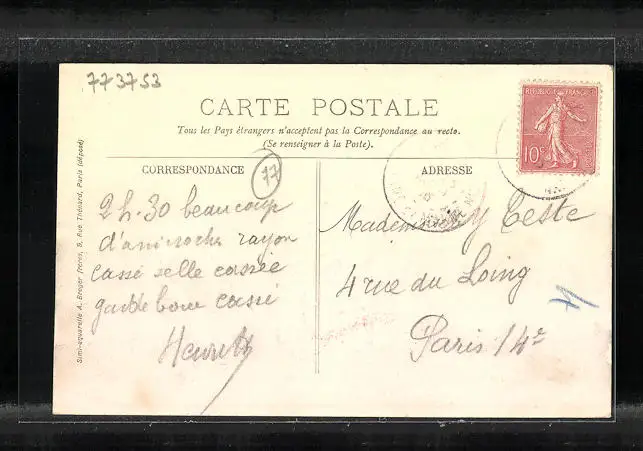 773753
CARTE POSTALE
Tous les Pays étrangers n'acceptent pas la Correspondance au recto.
(Se renseigner à la Poste).
CORRESPONDANCE
17
ADRESSE
REPUBLIQUE FRANÇAISE
10c
2h-30 beaucoup
d'anicroche rayon
cassé selle cassée
garde boue cassé
Mademoiselle Y Teste
4 rue du Loing
Paris 14e
Simi-aquarelle A. Breger frères, 9, Rue Thénard, Paris (déposé)